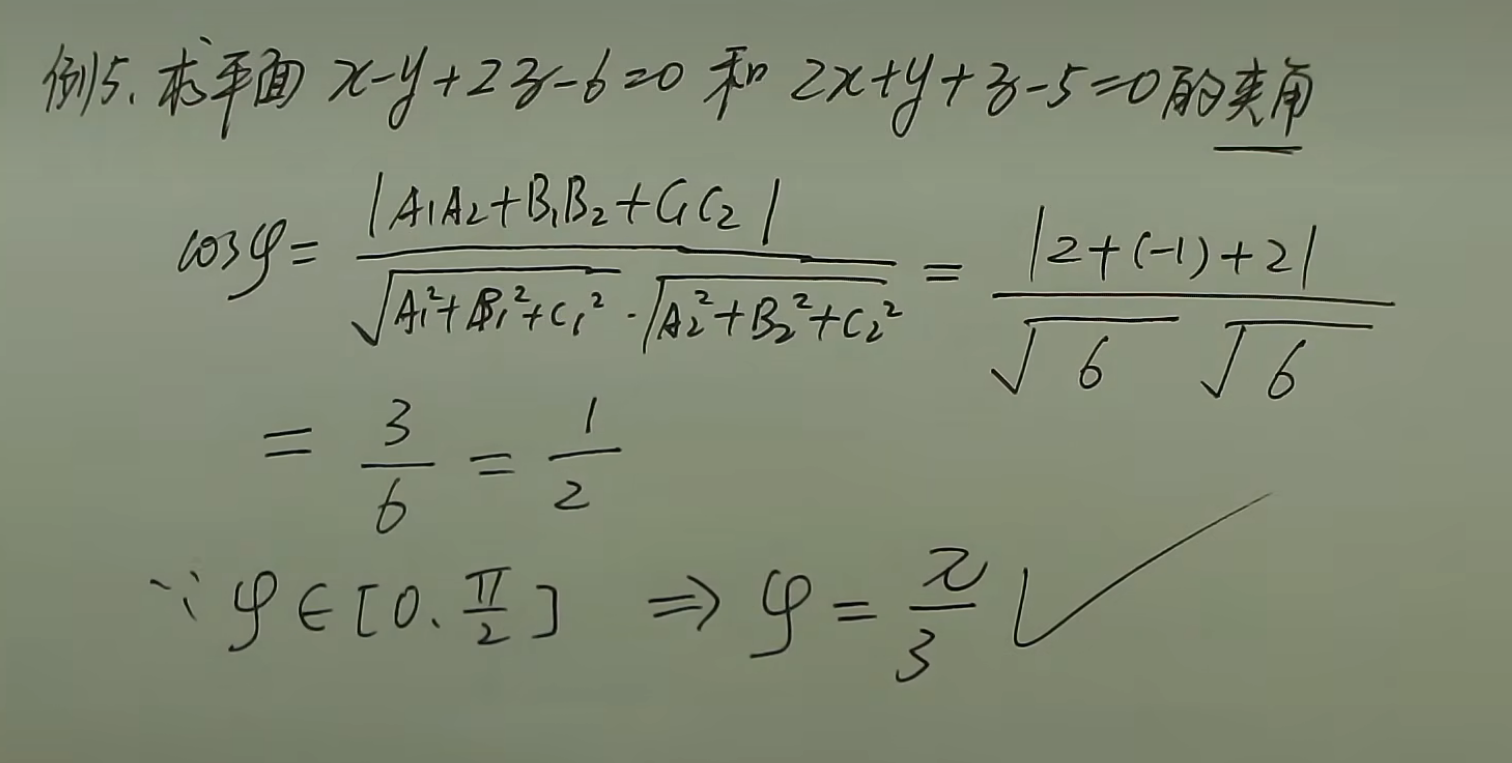 例5. 求平面 x-y+2z-6=0 和 2x+y+z-5=0 的夹角
cosφ = |A₁A₂+B₁B₂+C₁C₂| / √(A₁²+B₁²+C₁²)·√(A₂²+B₂²+C₂²) = |2+(-1)+2| / √6 √6
= 3/6 = 1/2
∵ φ∈[0.π/2] ⇒ φ = π/3